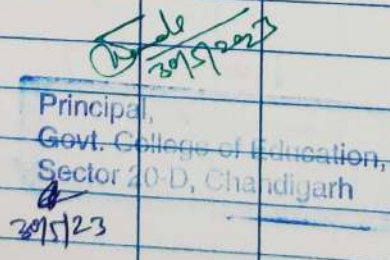 30/5/2023
Principal,
Govt. College of Education,
Sector 20-D, Chandigarh
30/5/23